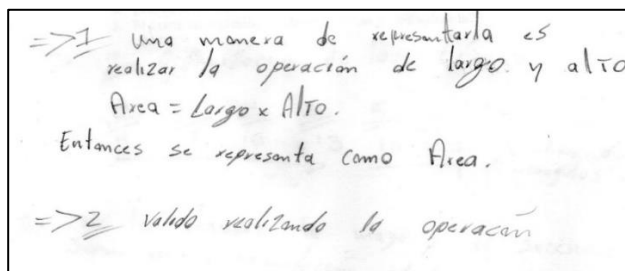 =>1 una manera de representarla es
realizar la operación de largo. y alto
Area = Largo x Alto.
Entonces se representa como Area.
=>2 valido realizando la operacón